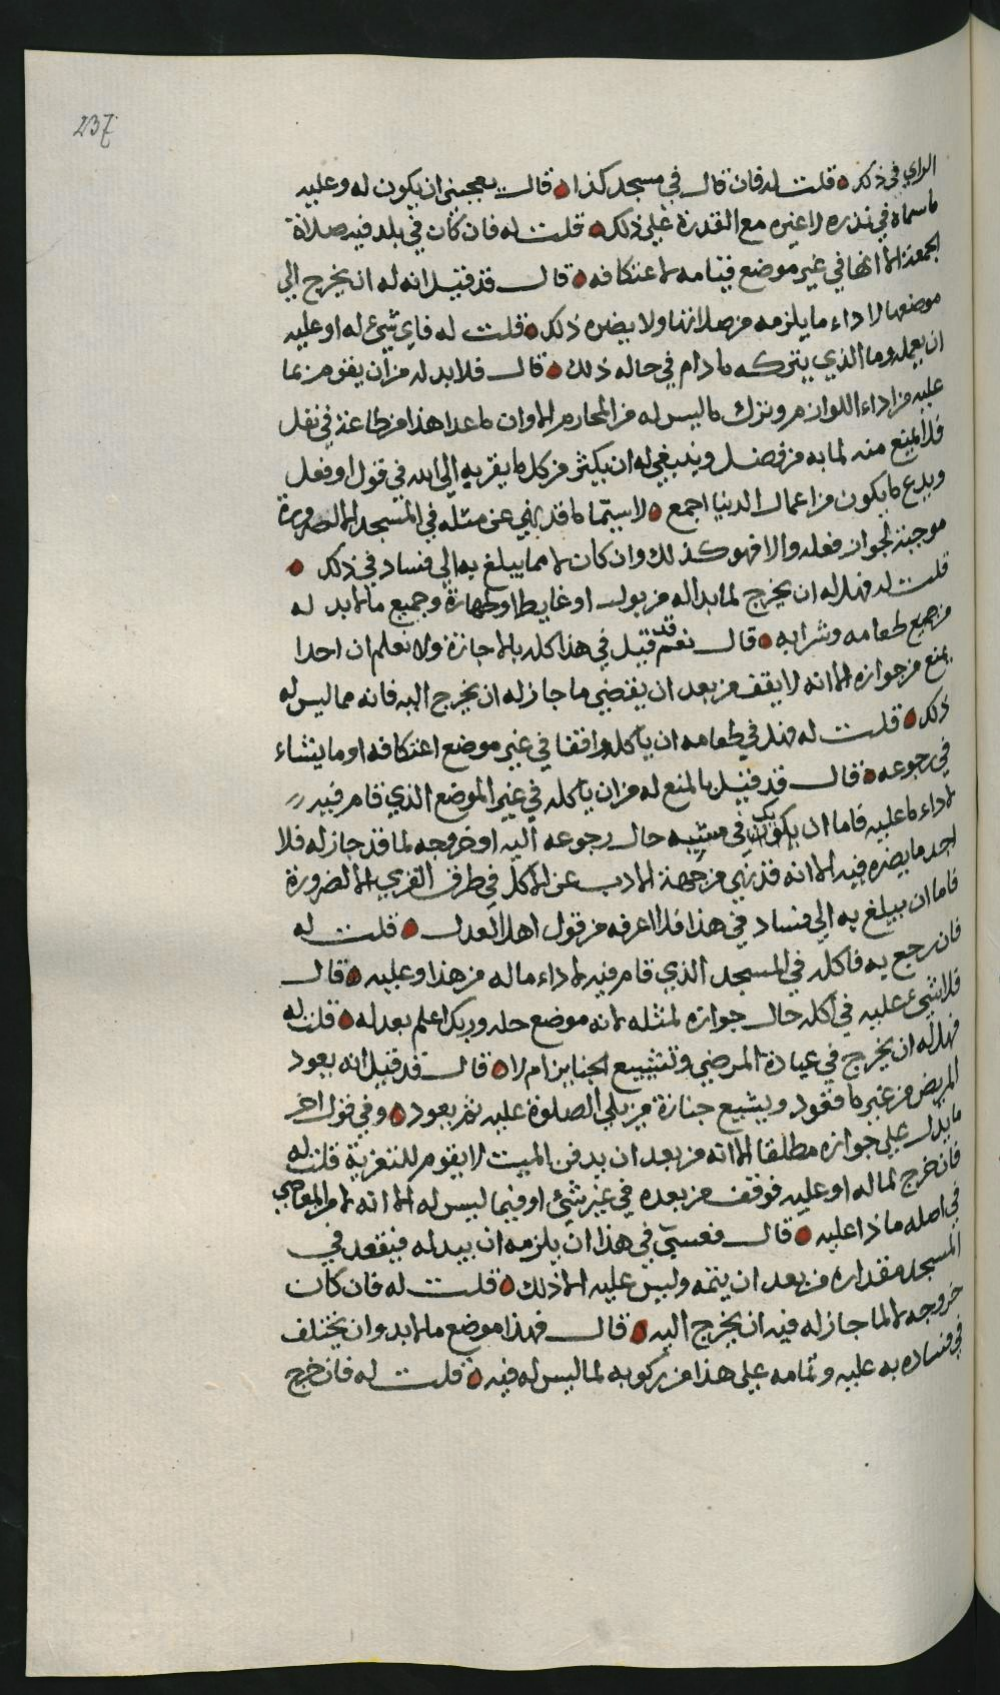 237
الراي في ذلك قلت له فان قال في مسجد كذا قال يعجبني ان يكون له وعليه
ما سماه في نذره لا غيره مع القدرة على ذلك قلت له فان كان في بلد فيه صلاة
الجمعة الا انها في غير موضع قيامه لاعتكافه قال قد قيل انه له ان يخرج الى
موضعها لاداء ما يلزمه من صلاتها ولا يضره ذلك قلت له فاي شيء له او عليه
ان يعمله وما الذي يتركه ما دام في حاله ذلك قال فلا بد له من ان يقوم بما
عليه من اداء اللوازم وترك ما ليس له من المحارم الا وان ما عدا هذا من طاعة في نفل
فلا يمنع منه لما به من فضل وينبغي له ان يكثر من كل ما يقربه الى الله في قول او فعل
ويدع ما يكون من اعمال الدنيا اجمع لا سيما ما قد نهي عن مثله في المسجد الا لضرورة
موجبة لجواز فعله والا فهو كذلك وان كان لا مما يبلغ به الى فساد في ذلك
قلت له فهل له ان يخرج لما بدا له من بول او غايط او طهارة وجميع ما لا بد له
من جميع طعامه وشرابه قال نعم قد قيل في هذا كله بالاجازة ولا نعلم ان احدا
يمنع من جوازه الا انه لا يقف من بعد ان يقضي ما جاز له ان يخرج اليه فانه مما ليس له
ذلك قلت له فهل في طعامه ان ياكله واقفا في غير موضع اعتكافه او ما يشاء
في رجوعه قال قد قيل بالمنع له من ان ياكله في غير الموضع الذي قام فيه
لاداء ما عليه فاما ان يكون في مشيه حال رجوعه اليه او خروجه لما قد جاز له فلا
اجد ما يضره فيه الا انه قد نهي من جهة الادب عن الاكل في طرف القرى الا لضرورة
فاما ان يبلغ به الى فساد في هذا فلا اعرفه من قول اهل العدل قلت له
فان رجع به فاكله في المسجد الذي قام فيه لاداء ماله من هذا وعليه قال
فلا شيء عليه في اكله حال جوازه لمثله لانه موضع حله وربك اعلم بعدله قلت له
فهل له ان يخرج في عيادة المرضى وتشييع الجنايز ام لا قال قد قيل انه يعود
المريض من غير ما قعود ويشيع جنازة من يلي الصلوة عليه ثم يعود وفي قول اخر
ما يدل على جوازه مطلقا الا انه من بعد ان يدفن الميت لا يقوم للتعزية قلت له
فان خرج لماله او عليه فوقف من بعده في غير شيء او فيما ليس له الا انه لا من المعاصي
في اصله ما ذا عليه قال فعسى في هذا ان يلزمه ان يبدله فيقعد في
المسجد مقداره من بعد ان يتمه وليس عليه الا ذلك قلت له فان كان
خروجه لا لما جاز له فيه ان يخرج اليه قال فهذا موضع ما لا بد وان يختلف
في فساده به عليه وتمامه على هذا من ركوبه لما ليس له فيه قلت له فان خرج